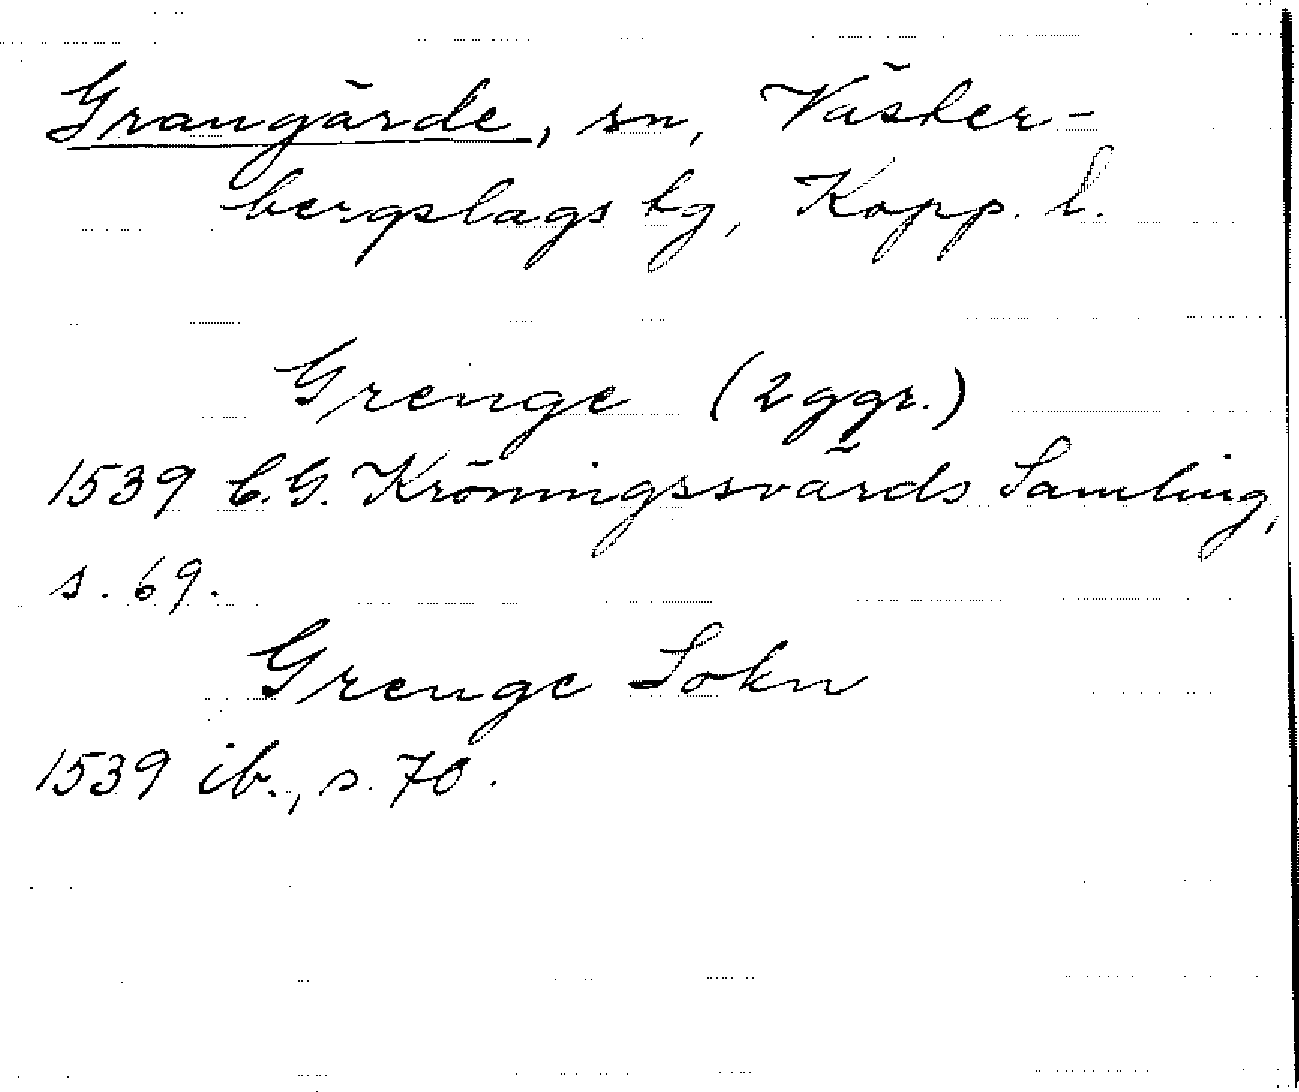 Grangärde, sn, Väster-
bergslags tg, Kopp. l.
Grenge (2 ggr.)
1539 C.G. Kröningssvärds Samling,
s. 69.
Grenge Sokn
1539 ib., s. 70.